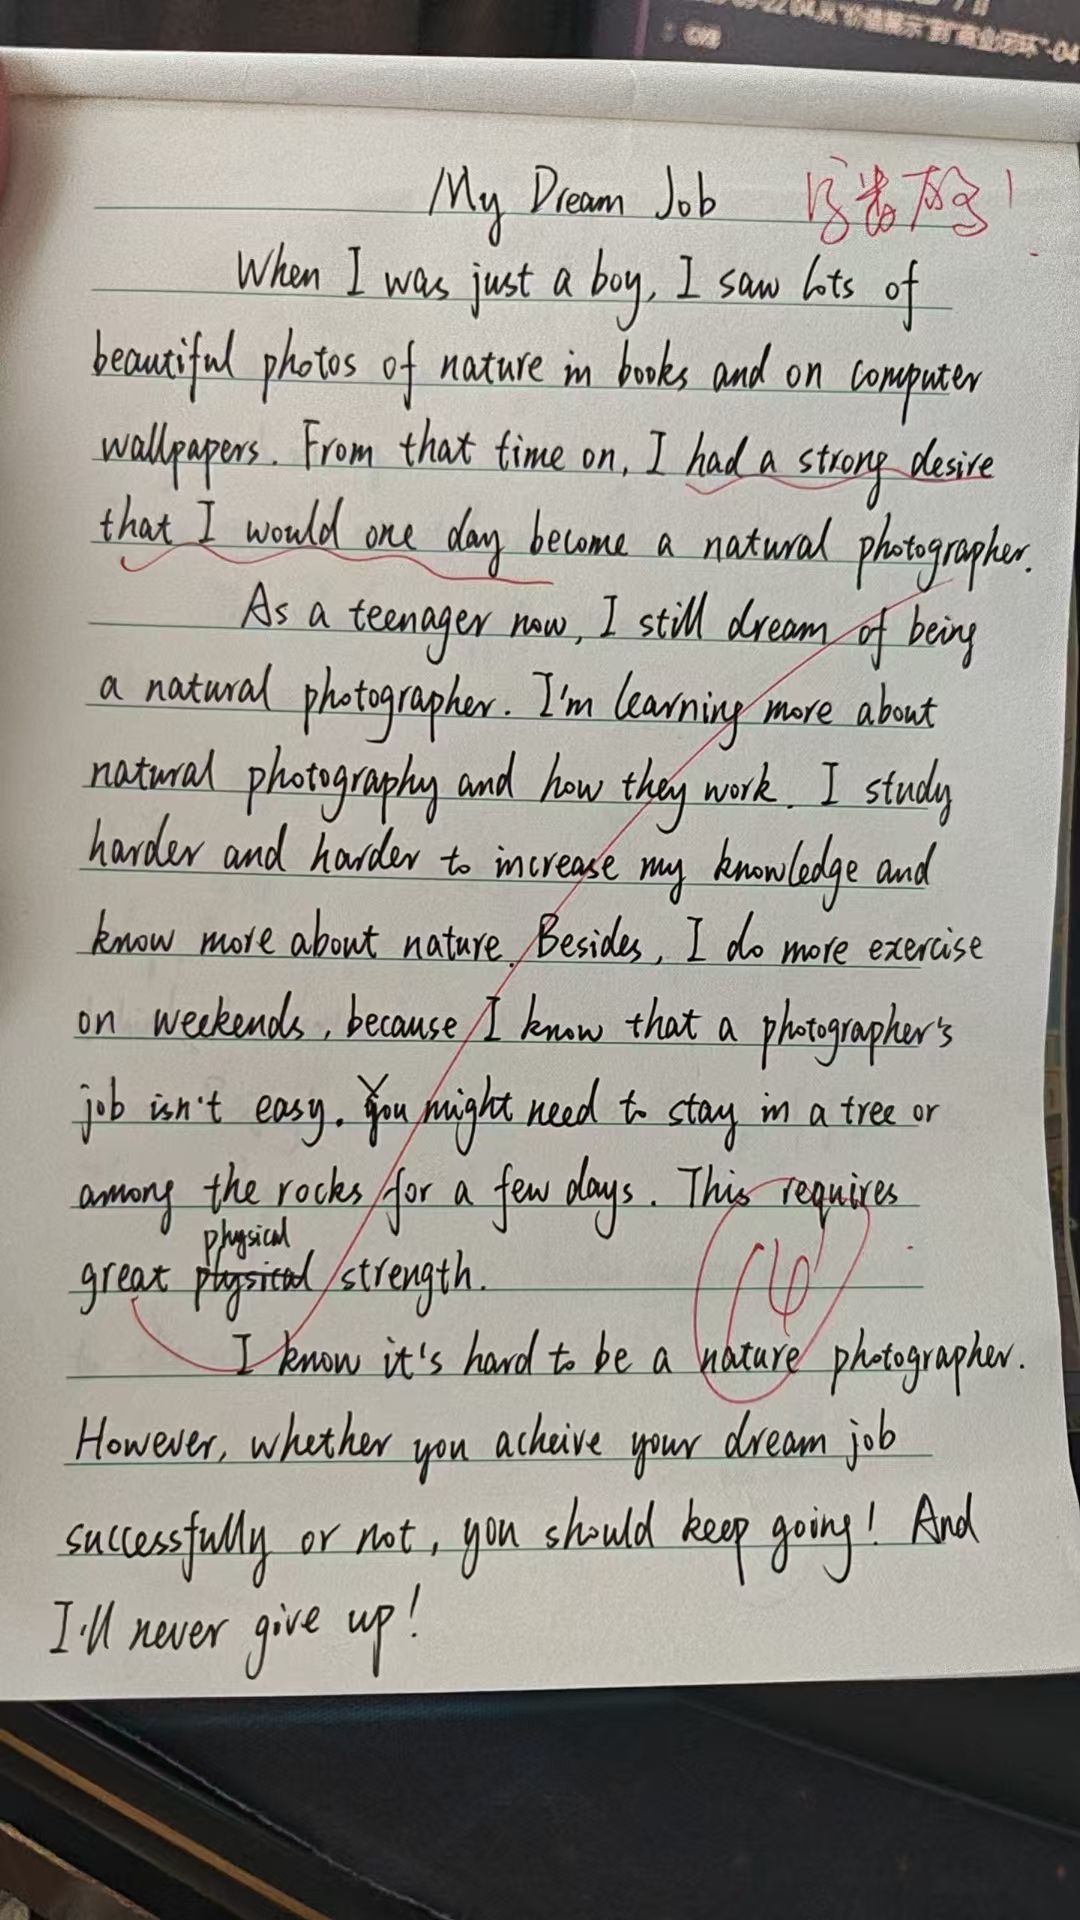 My Dream Job
When I was just a boy, I saw lots of
beautiful photos of nature in books and on computer
wallpapers. From that time on, I had a strong desire
that I would one day become a natural photographer.
As a teenager now, I still dream of being
a natural photographer. I'm learning more about
natural photography and how they work. I study
harder and harder to increase my knowledge and
know more about nature. Besides, I do more exercise
on weekends, because I know that a photographer's
job isn't easy. You might need to stay in a tree or
among the rocks for a few days. This requires
physical
great physical strength.
14
I know it's hard to be a nature photographer.
However, whether you acheive your dream job
successfully or not, you should keep going! And
I'll never give up!